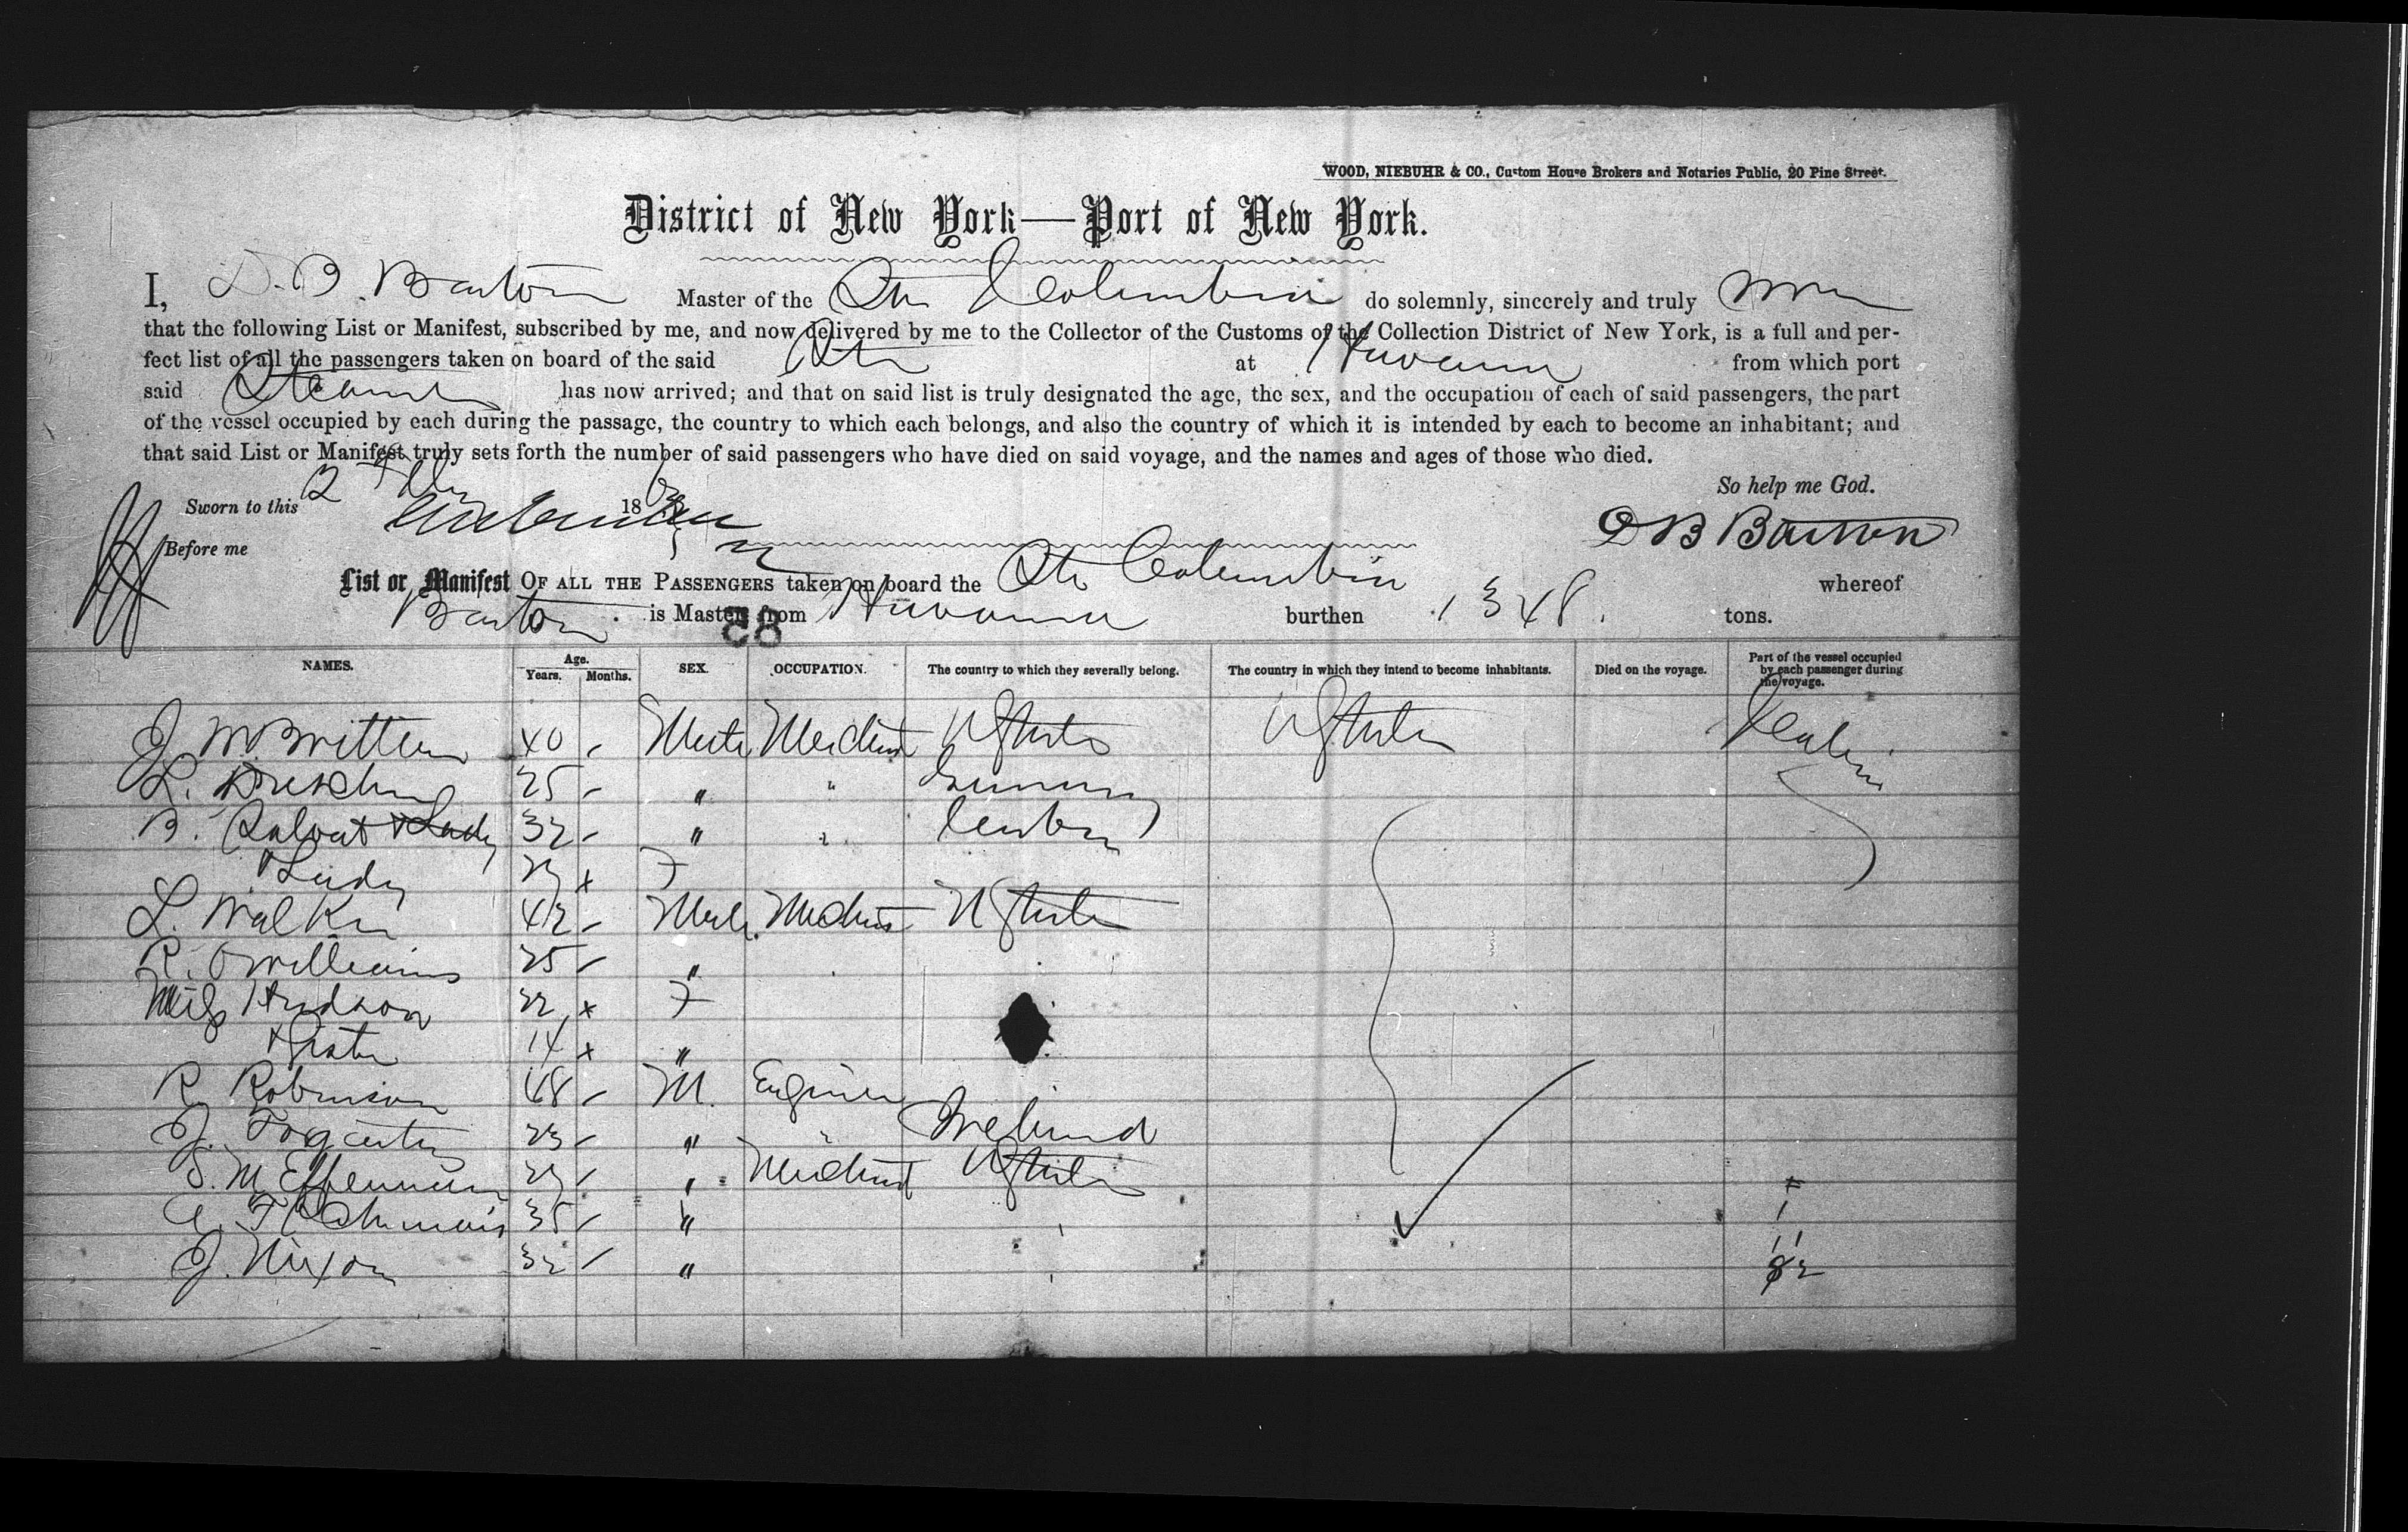 WOOD, NIEBUHR & CO., Custom House Brokers and Notaries Public, 20 Pine Street.
District of New York—Port of New York.
I, D. B. Barton Master of the Str Columbia do solemnly, sincerely and truly
that the following List or Manifest, subscribed by me, and now delivered by me to the Collector of the Customs of the Collection District of New York, is a full and per-
fect list of all the passengers taken on board of the said Str at Havana from which port
said Steamer has now arrived; and that on said list is truly designated the age, the sex, and the occupation of each of said passengers, the part
of the vessel occupied by each during the passage, the country to which each belongs, and also the country of which it is intended by each to become an inhabitant; and
that said List or Manifest truly sets forth the number of said passengers who have died on said voyage, and the names and ages of those who died.
So help me God.
Sworn to this 186
D B Barton
Before me
List or Manifest OF ALL THE PASSENGERS taken on board the Str Columbia whereof
Barton is Master from Havana burthen 1348. tons.
58
NAMES. Age. Years. Months. SEX. OCCUPATION. The country to which they severally belong. The country in which they intend to become inhabitants. Died on the voyage. Part of the vessel occupied by each passenger during the voyage.
J. M Britten 40 - Male Merchant U States U States Cabin
L. 25 - " " Germany
B. Salvat & Lady 32 - " " Cuba
& Lady x F
L. Walker 42 - Male Merchant U States
R. O Williams 25 - "
Miss Hudson 22 x F
& Sister 14 x "
R Robinson 48 - M. Engineer
J. Fogarty 23 - " " Ireland
S. M - " Merchant U States
35 - "
J. Nixon 32 - "